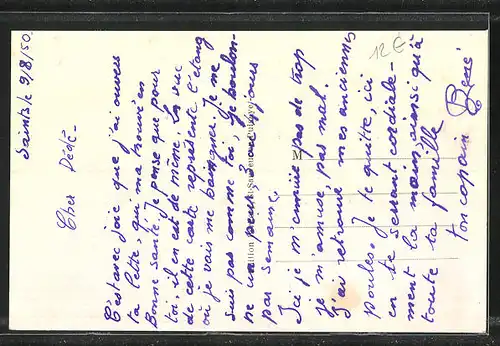 Saints le 9/8/50.
Cher Dédé -
C'est avec joie que j'ai ouvers
ta lettre, qui m'a trouvé en
Bonne santé. Je pense que pour
toi, il en est de même. La vue
de cette carte représente l'étang
où je vais me baigner. Je ne
suis pas comme toi, je
ne peux 3 ou 4 jours
par semaine.
Ici je m'ennuie pas de trop
je m'amuse pas mal.
J'ai retrouvé mes anciennes
poules. Je te quitte, ici
en te serrant cordiale-
ment la main, ainsi qu'à
toute ta famille
ton copain René
12 €
M